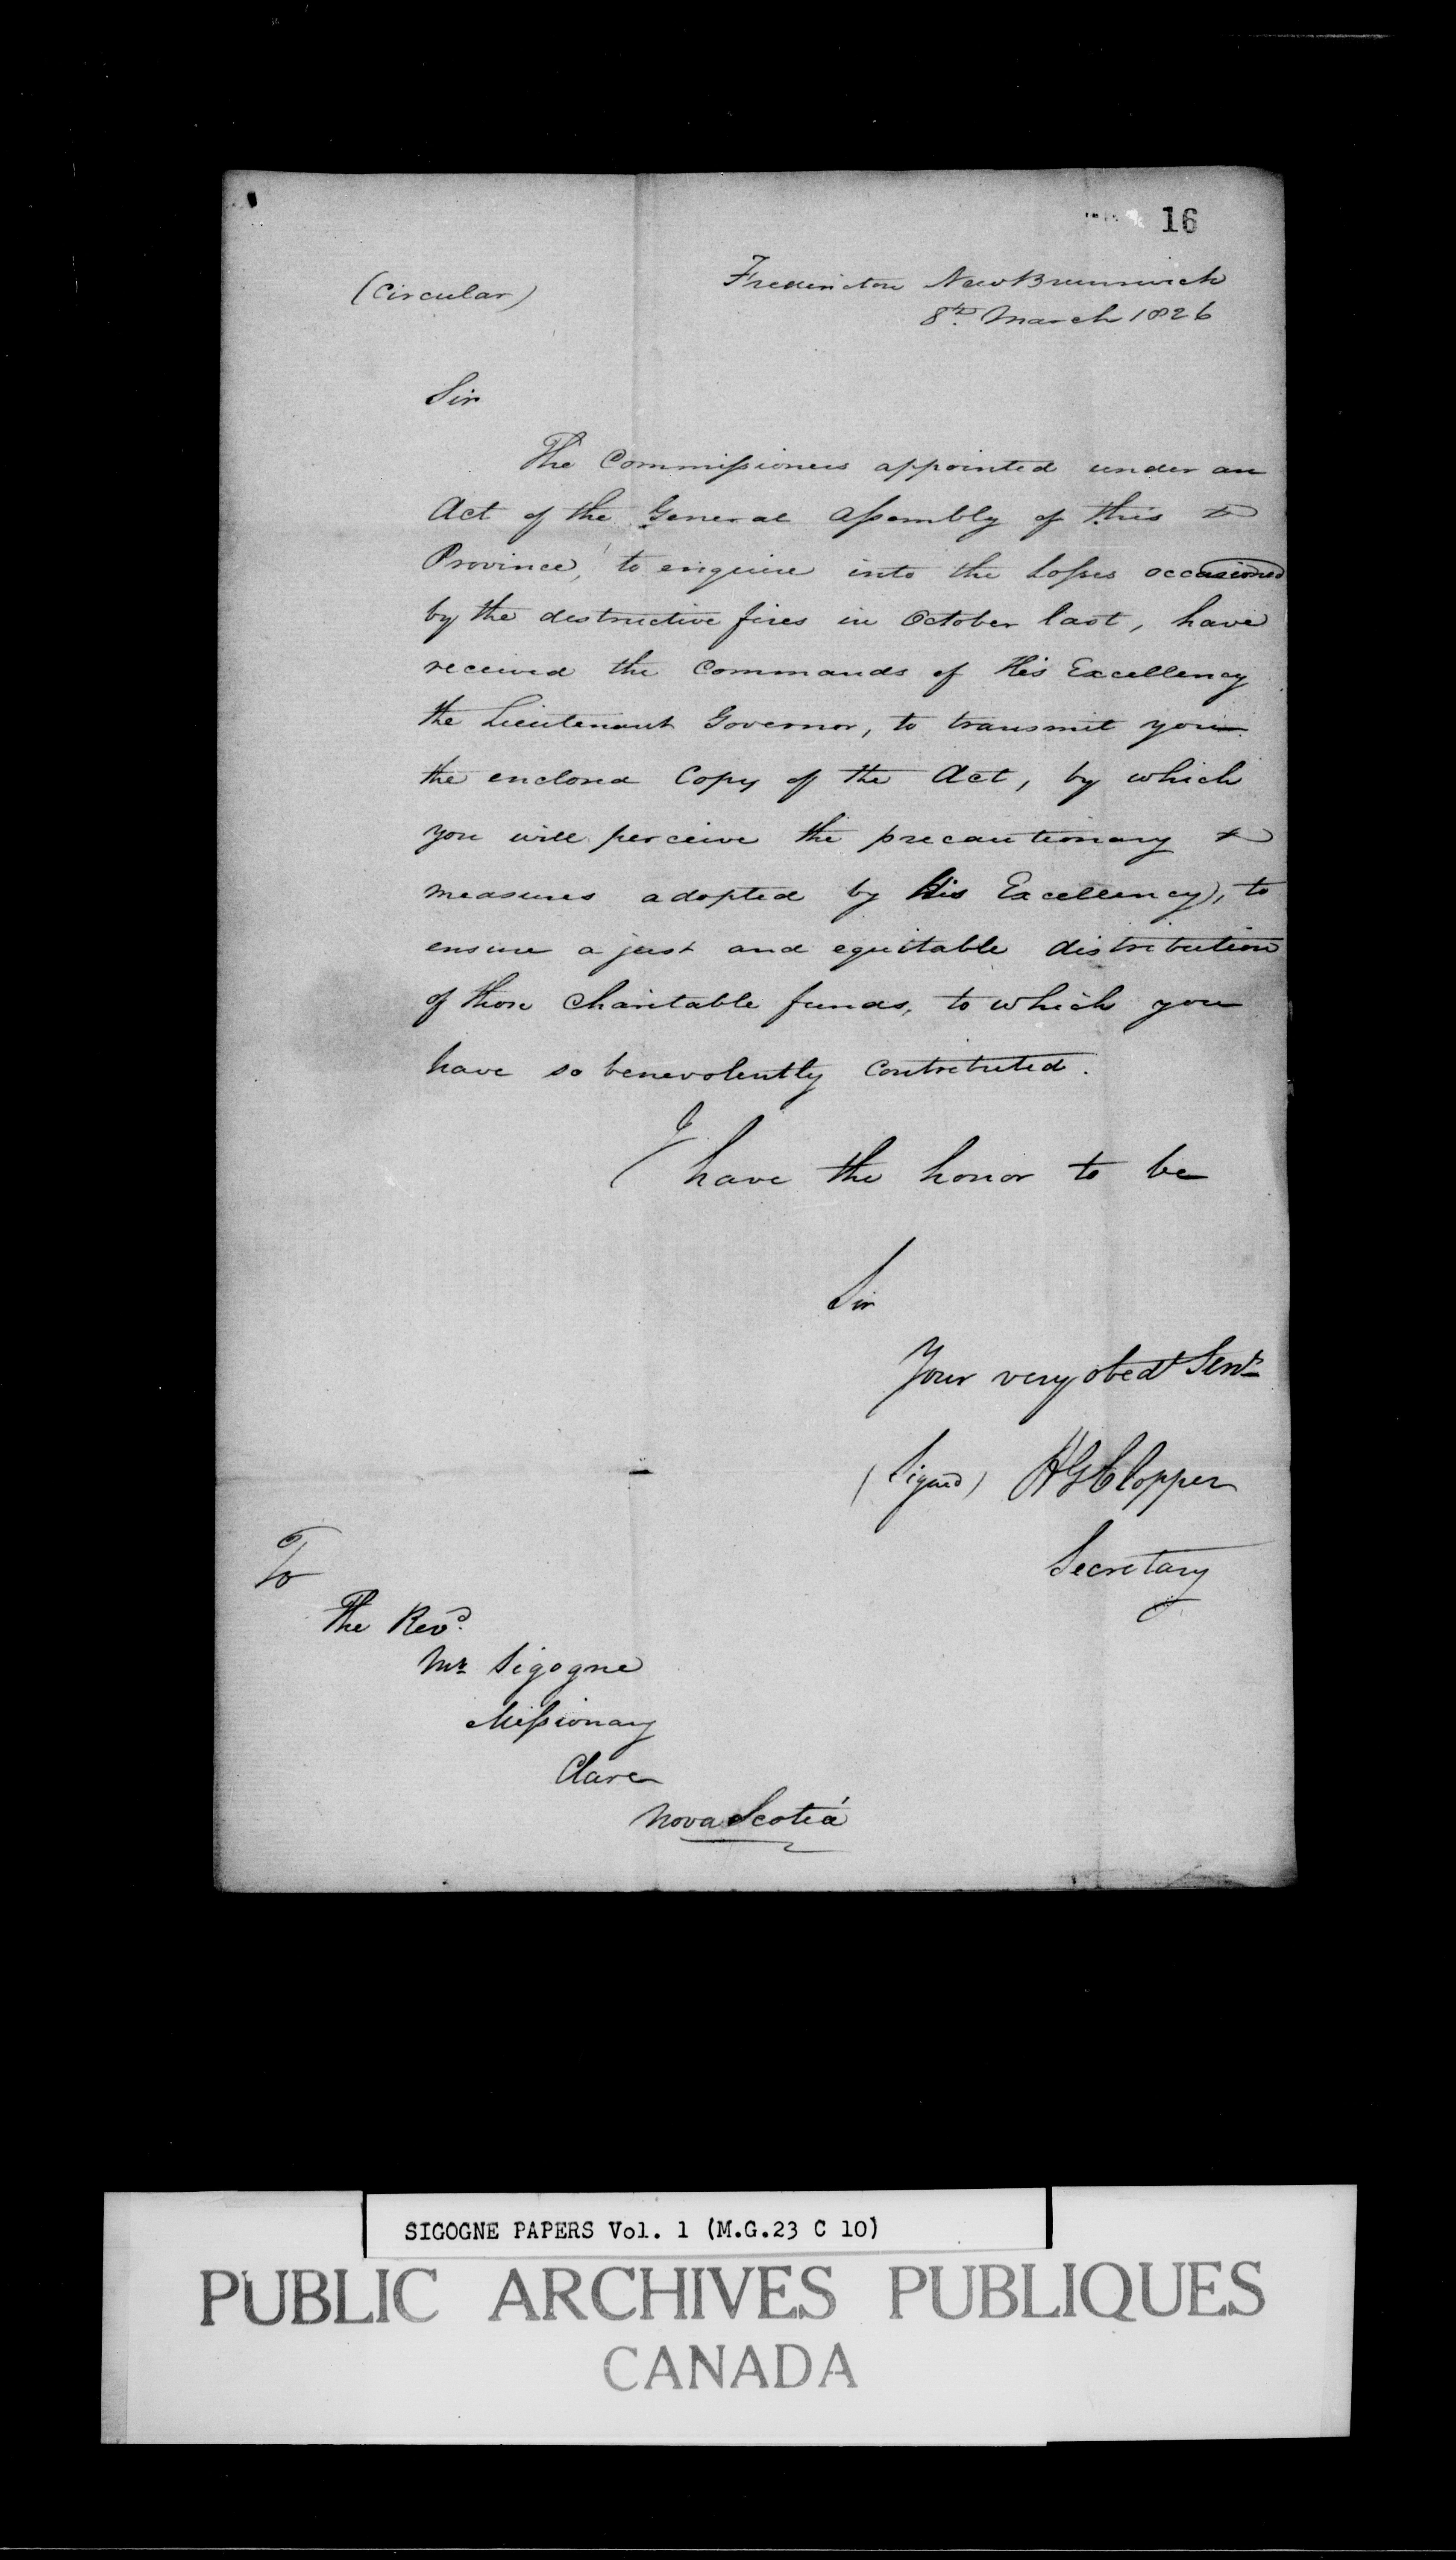 16
(Circular)
Fredericton New Brunswick
8th March 1826
Sir
The Commissioners appointed under an
Act of the General Assembly of this
Province, to enquire into the Losses occasioned
by the destructive fires in October last, have
received the Commands of His Excellency
the Lieutenant Governor, to transmit you
the enclosed Copy of the Act, by which
you will perceive the precautionary
measures adopted by His Excellency, to
ensure a just and equitable distribution
of those Charitable funds, to which you
have so benevolently Contributed.
I have the honor to be
Sir
Your very obedt Servt
(Signed) HG Clopper
Secretary
To
The Revd.
Mr Sigogne
Missionary
Clare
Nova Scotia
SIGOGNE PAPERS Vol. 1 (M.G.23 C 10)
PUBLIC ARCHIVES PUBLIQUES
CANADA